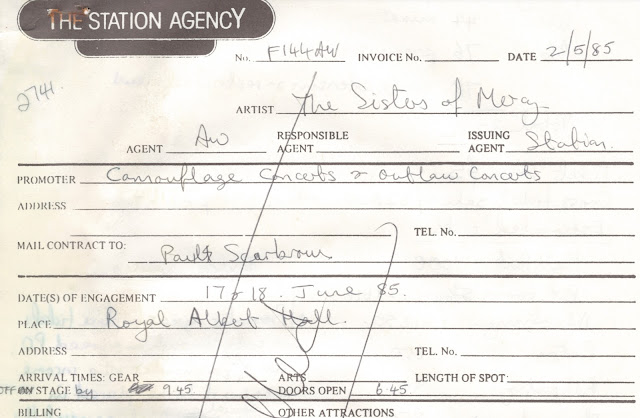 THE STATION AGENCY
No. F144AW INVOICE No. DATE 2/5/85
2741.
ARTIST The Sisters of Mercy
AGENT AW RESPONSIBLE AGENT ISSUING AGENT Station.
PROMOTER Camouflage Concerts & Outlaw Concerts
ADDRESS
TEL. No.
MAIL CONTRACT TO: Paul Scarbrow
DATE(S) OF ENGAGEMENT 17 & 18. June 85.
PLACE Royal Albert Hall.
ADDRESS TEL. No.
ARRIVAL TIMES: GEAR ARTS LENGTH OF SPOT:
OFF ON STAGE by 9.45 DOORS OPEN 6.45
BILLING OTHER ATTRACTIONS